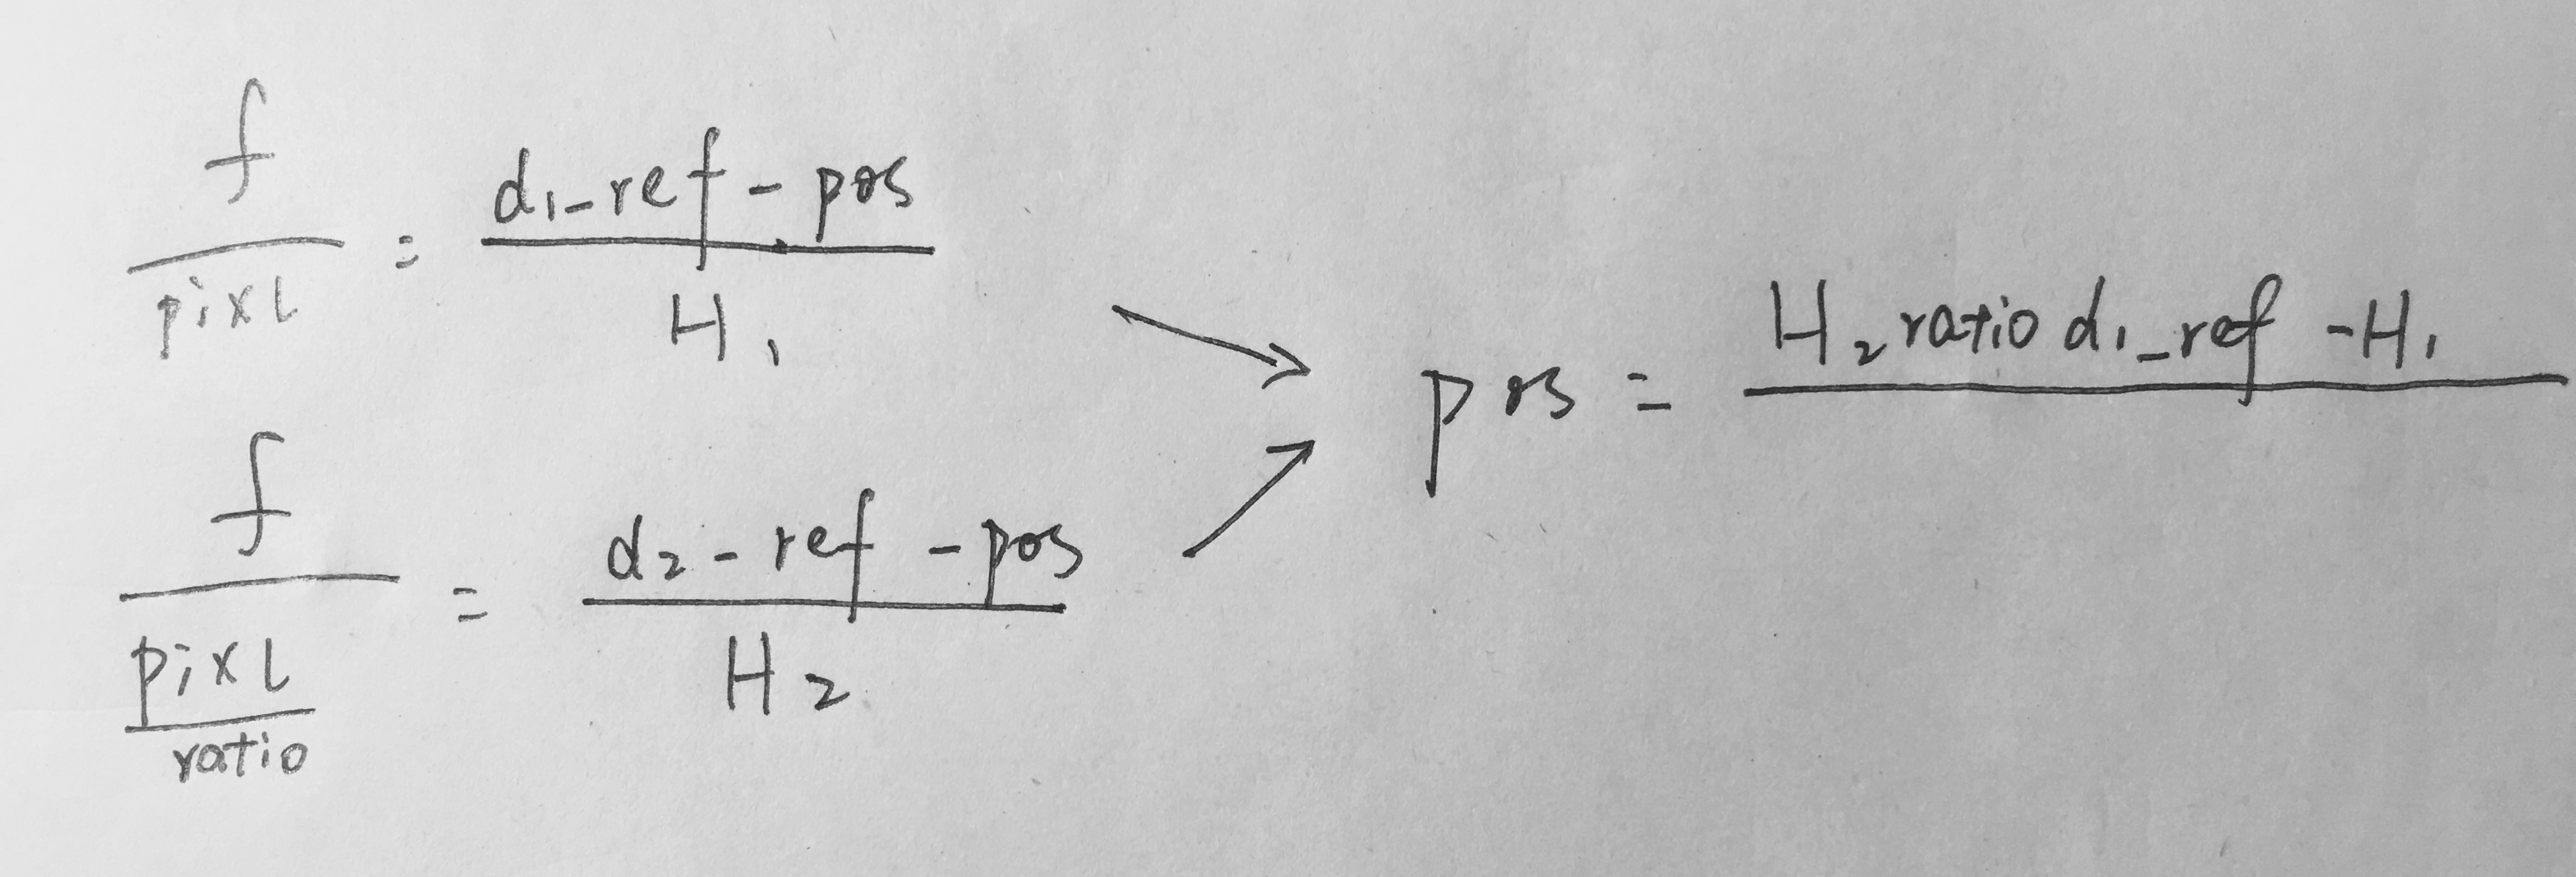 f/pixl = (d₁_ref - pos)/H₁
f/(pixl/ratio) = (d₂-ref - pos)/H₂
pos = (H₂ ratio d₁_ref - H₁)/